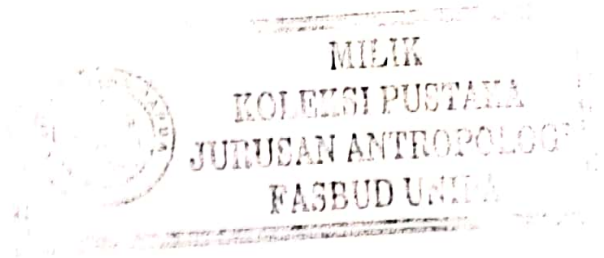 MILIK
KOLEKSI PUSTAKA
JURUSAN ANTROPOLOGI
FASBUD